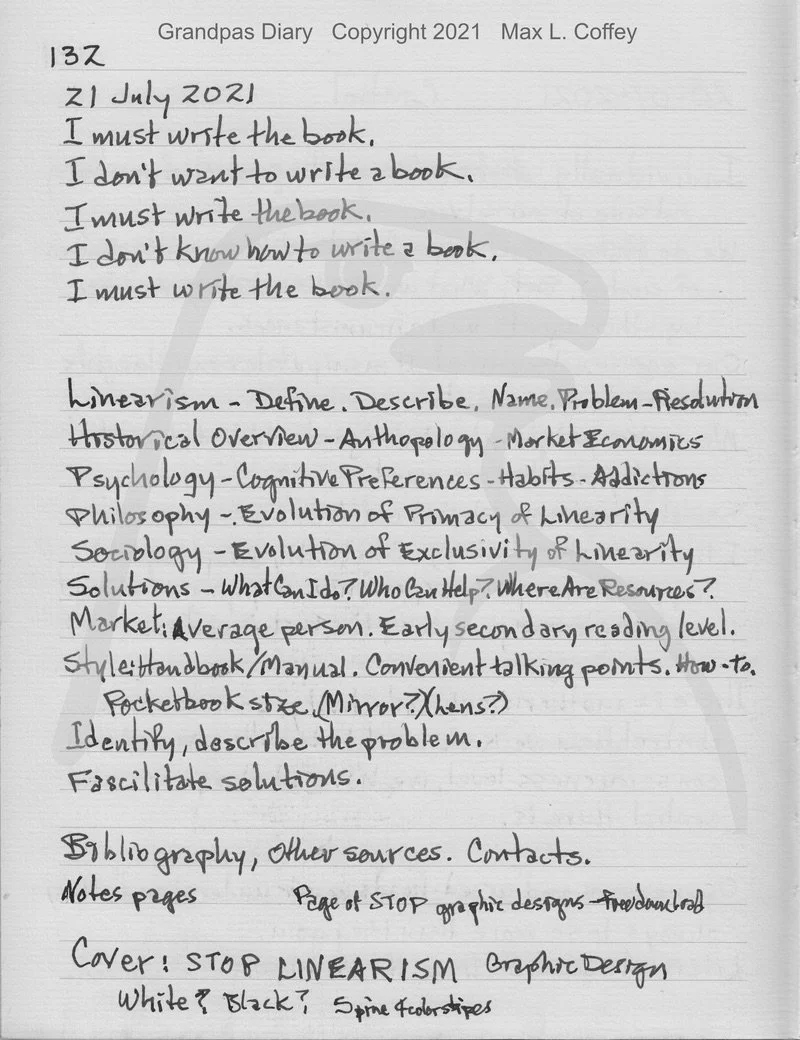 Grandpas Diary Copyright 2021 Max L. Coffey
132
21 July 2021
I must write the book.
I don't want to write a book.
I must write the book.
I don't know how to write a book.
I must write the book.
Linearism - Define. Describe. Name. Problem-Resolution
Historical Overview - Anthopology - Market Economics
Psychology - Cognitive Preferences - Habits - Addictions
Philosophy - Evolution of Primacy of Linearity
Sociology - Evolution of Exclusivity of Linearity
Solutions - What Can I do? Who Can Help? Where Are Resources?
Market: Average person. Early secondary reading level.
Style: Handbook/Manual. Convenient talking points. How-to.
Pocketbook size. (Mirror?) (Lens?)
Identify, describe the problem.
Fascilitate solutions.
Bibliography, Other sources. Contacts.
Notes pages Page of STOP graphic designs - free download
Cover: STOP LINEARISM Graphic Design
White? Black? Spine 4 color stipes